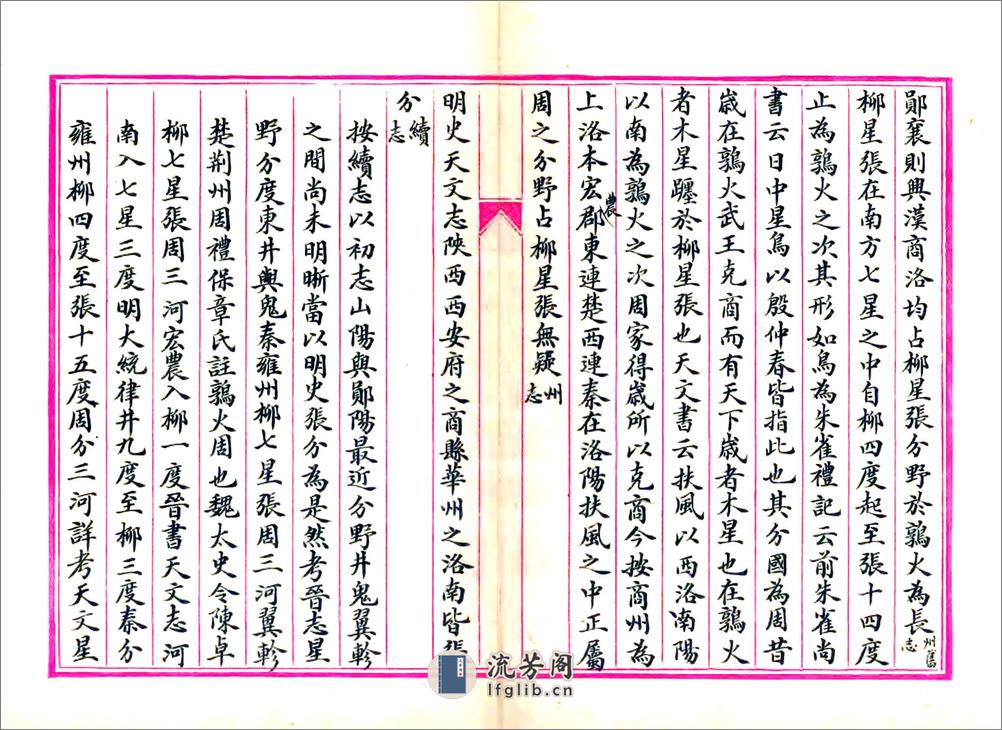 鄖襄則興漢商洛均占柳星張分野於鶉火為長州舊志
柳星張在南方七星之中自柳四度起至張十四度
止為鶉火之次其形如鳥為朱雀禮記云前朱雀尚
書云日中星鳥以殷仲春皆指此也其分國為周昔
歲在鶉火武王克商而有天下歲者木星也在鶉火
者木星躔於柳星張也天文書云扶風以西洛南陽
以南為鶉火之次周家得歲所以克商今按商州為
上洛本宏農郡東連楚西連秦在洛陽扶風之中正屬
周之分野占柳星張無疑州志
明史天文志陝西西安府之商縣華州之洛南皆張
分續志
按續志以初志山陽與鄖陽最近分野井鬼翼軫
之間尚未明晰當以明史張分為是然考晉志星
野分度東井輿鬼秦雍州柳七星張周三河翼軫
楚荊州周禮保章氏註鶉火周也魏太史令陳卓
柳七星張周三河宏農入柳一度晉書天文志河
南入七星三度明大統律井九度至柳三度秦分
雍州柳四度至張十五度周分三河詳考天文星
流芳阁
lfglib.cn